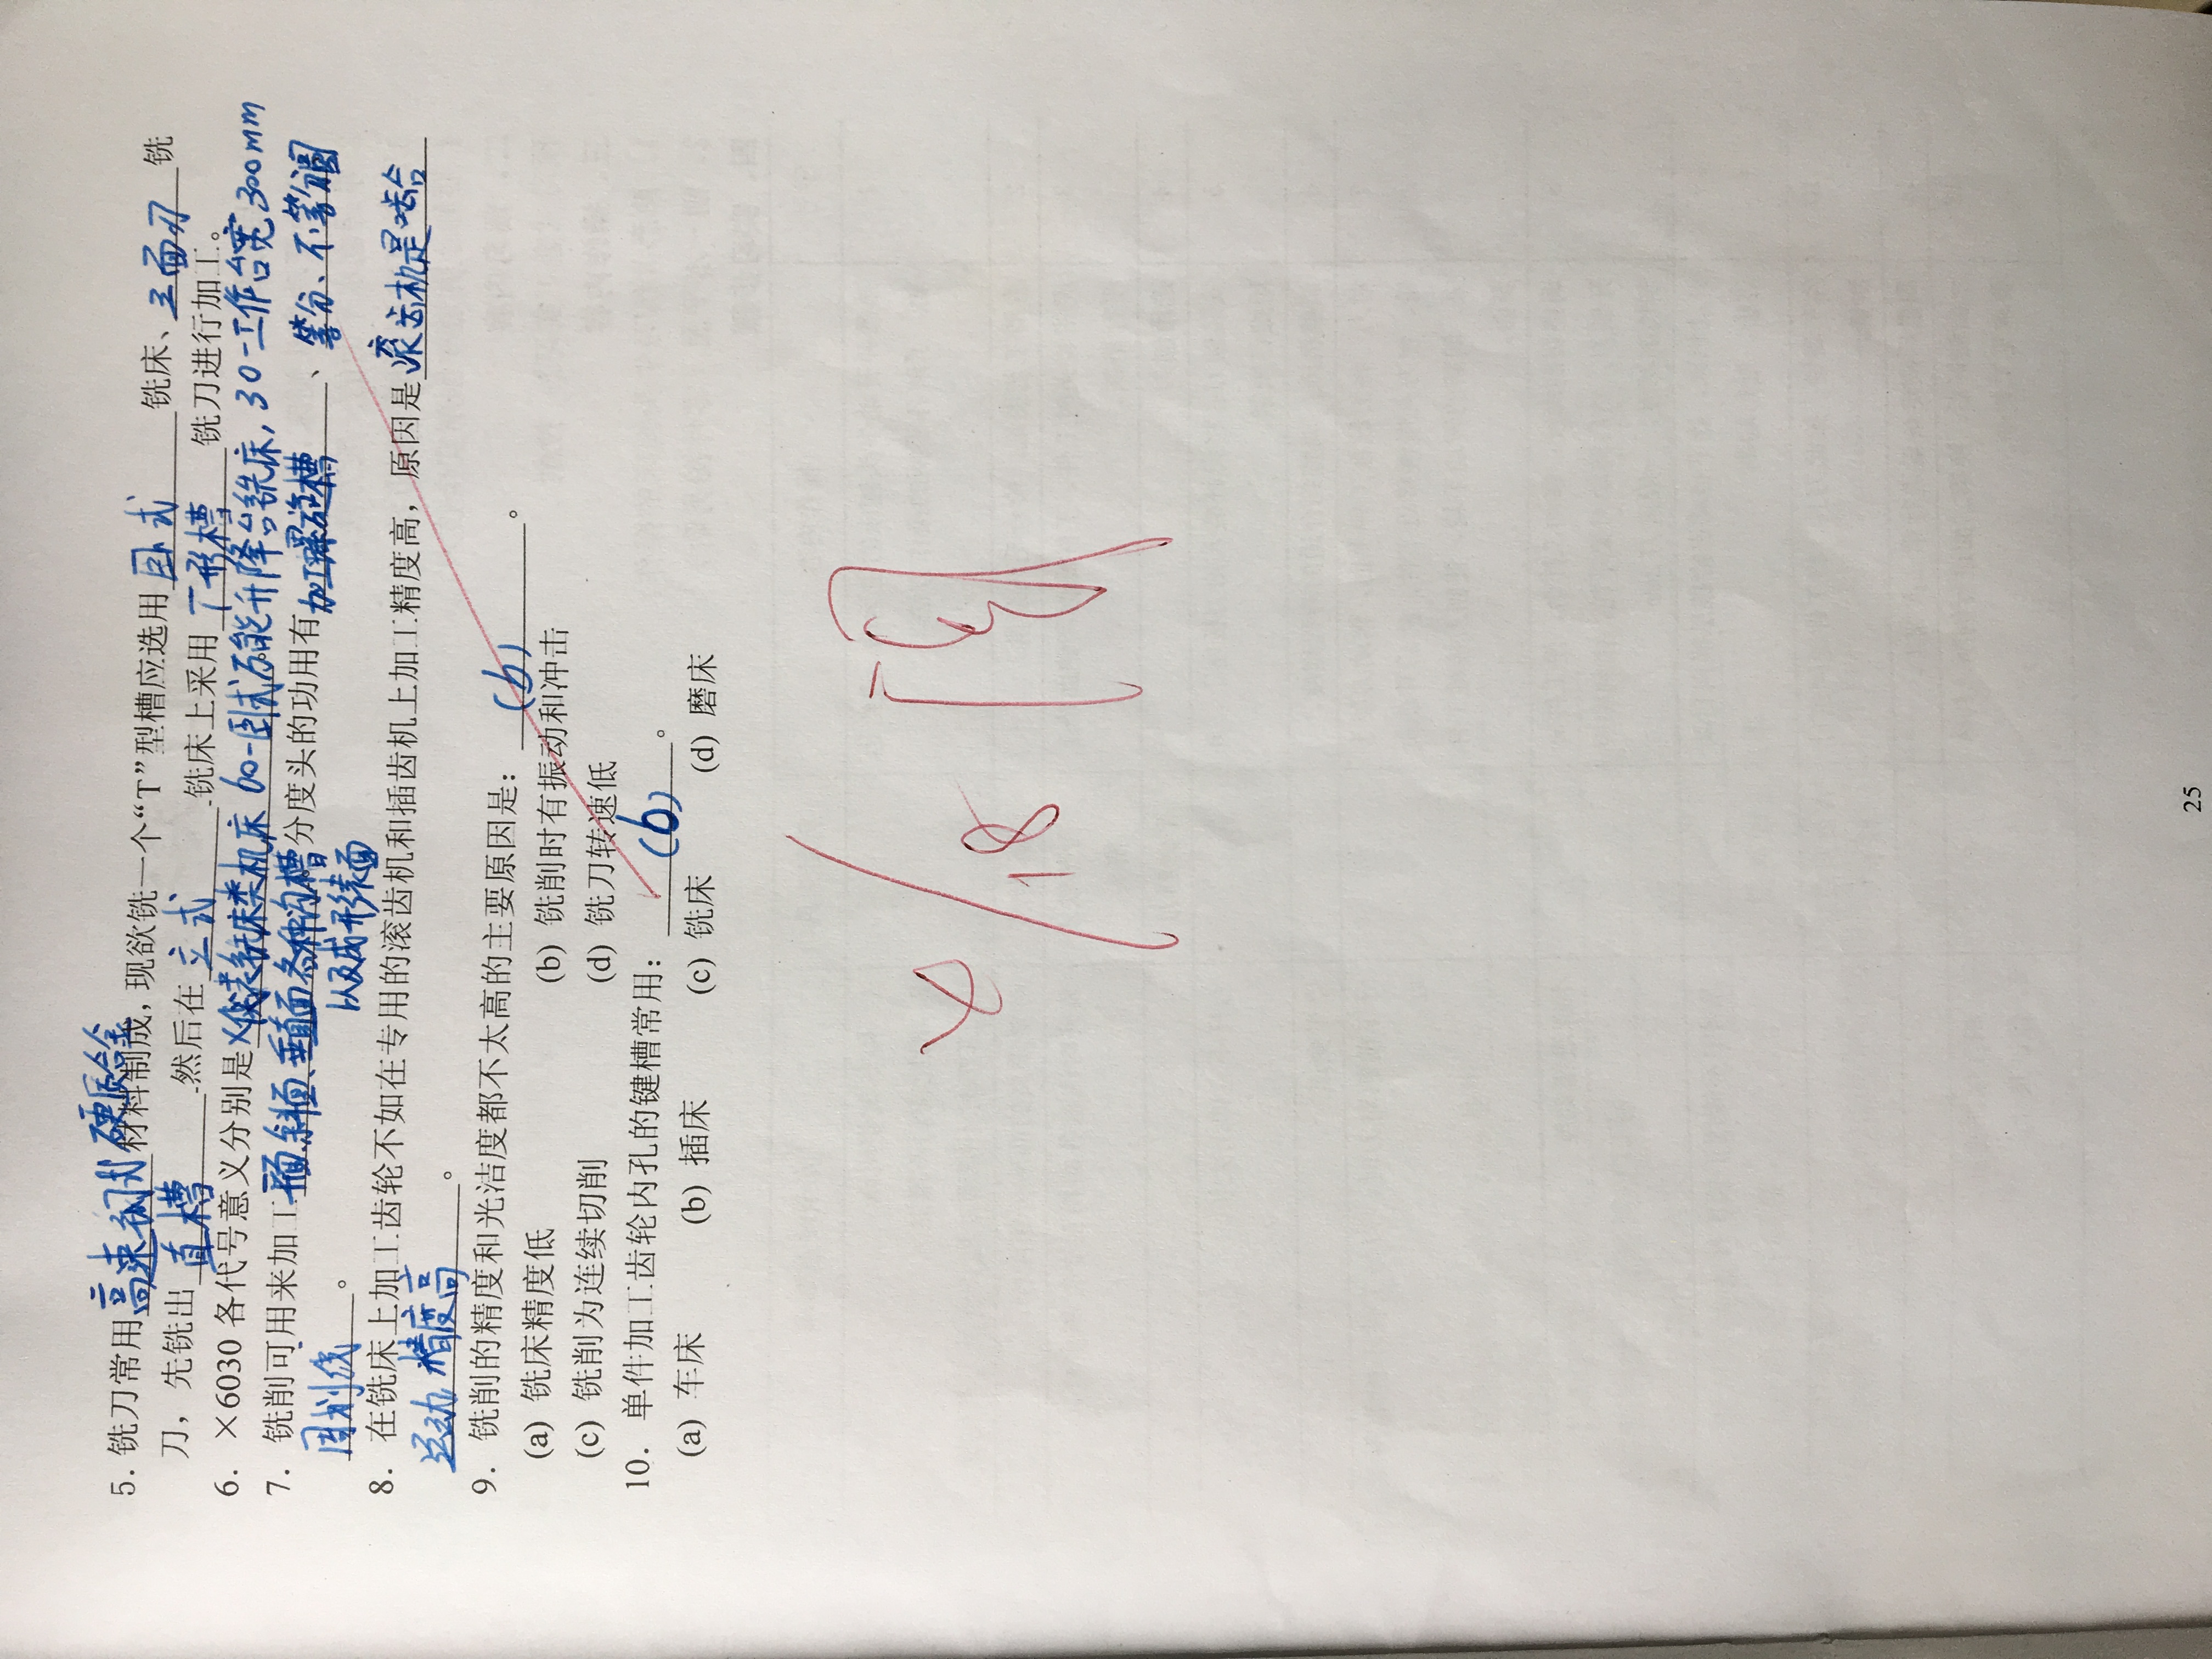 5. 铣刀常用高速钢或硬质合金材料制成，现欲铣一个“T”型槽应选用卧式铣床、三面刃铣
刀，先铣出直槽然后在立式铣床上采用T形槽铣刀进行加工。
6. ×6030 各代号意义分别是X代表铣床类机床 60-卧式万能升降台铣床，30-工作台宽300mm
7. 铣削可用来加工平面、斜面、垂直面各种沟槽 分度头的功用有加工螺旋槽、等分、不等分圆
以及成形表面
周划线。
8. 在铣床上加工齿轮不如在专用的滚齿机和插齿机上加工精度高，原因是滚齿机是啮合
运动 精度高。
9. 铣削的精度和光洁度都不太高的主要原因是：(b)。
(a) 铣床精度低 (b) 铣削时有振动和冲击
(c) 铣削为连续切削 (d) 铣刀转速低
10. 单件加工齿轮内孔的键槽常用：(b)。
(a) 车床 (b) 插床 (c) 铣床 (d) 磨床
/18 阅
25